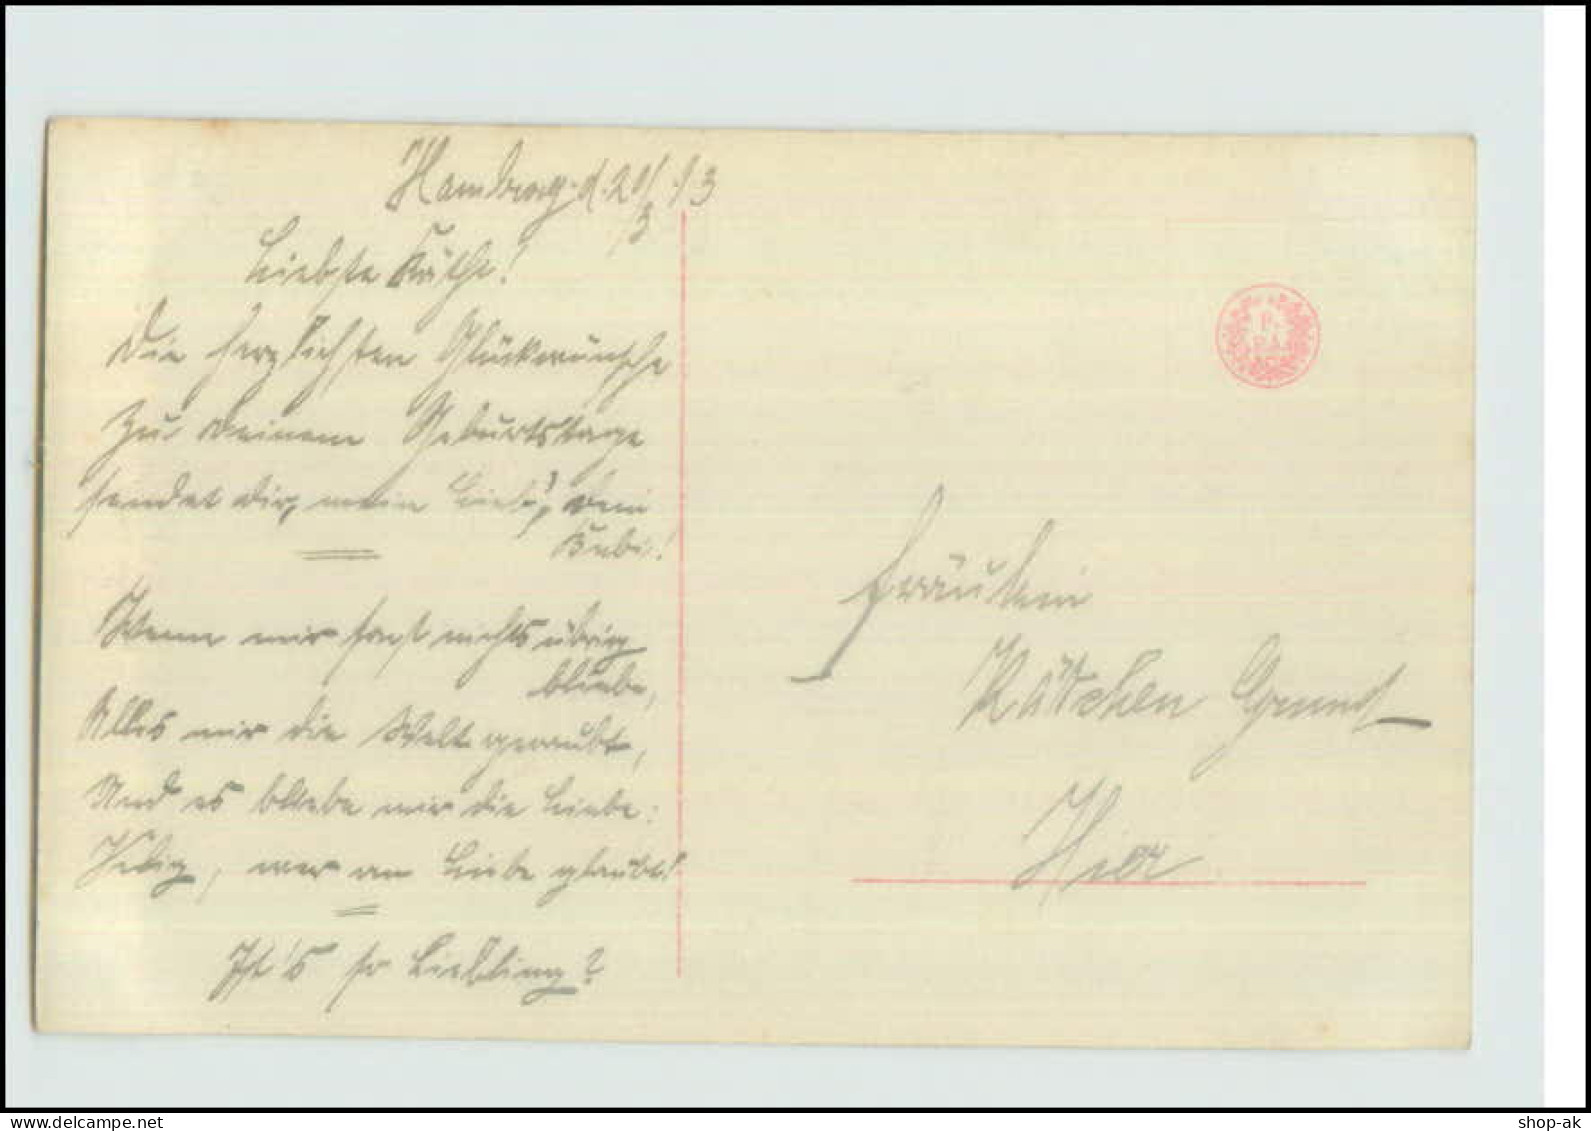 Hamburg. d. 20/3. 13
Liebste Käthe!
Die herzlichsten Glückwünsche
zu Deinem Geburtstage
sendet Dir, mein Lieb, Dein
Bubi!
Wenn mir sonst nichts übrig
bliebe,
Alles mir die Welt geraubt,
Und es bliebe mir die Liebe:
Selig, wer an Liebe glaubt!
Ist's so Liebling?
Fräulein
Kätchen Grund
Hier
shop-ak